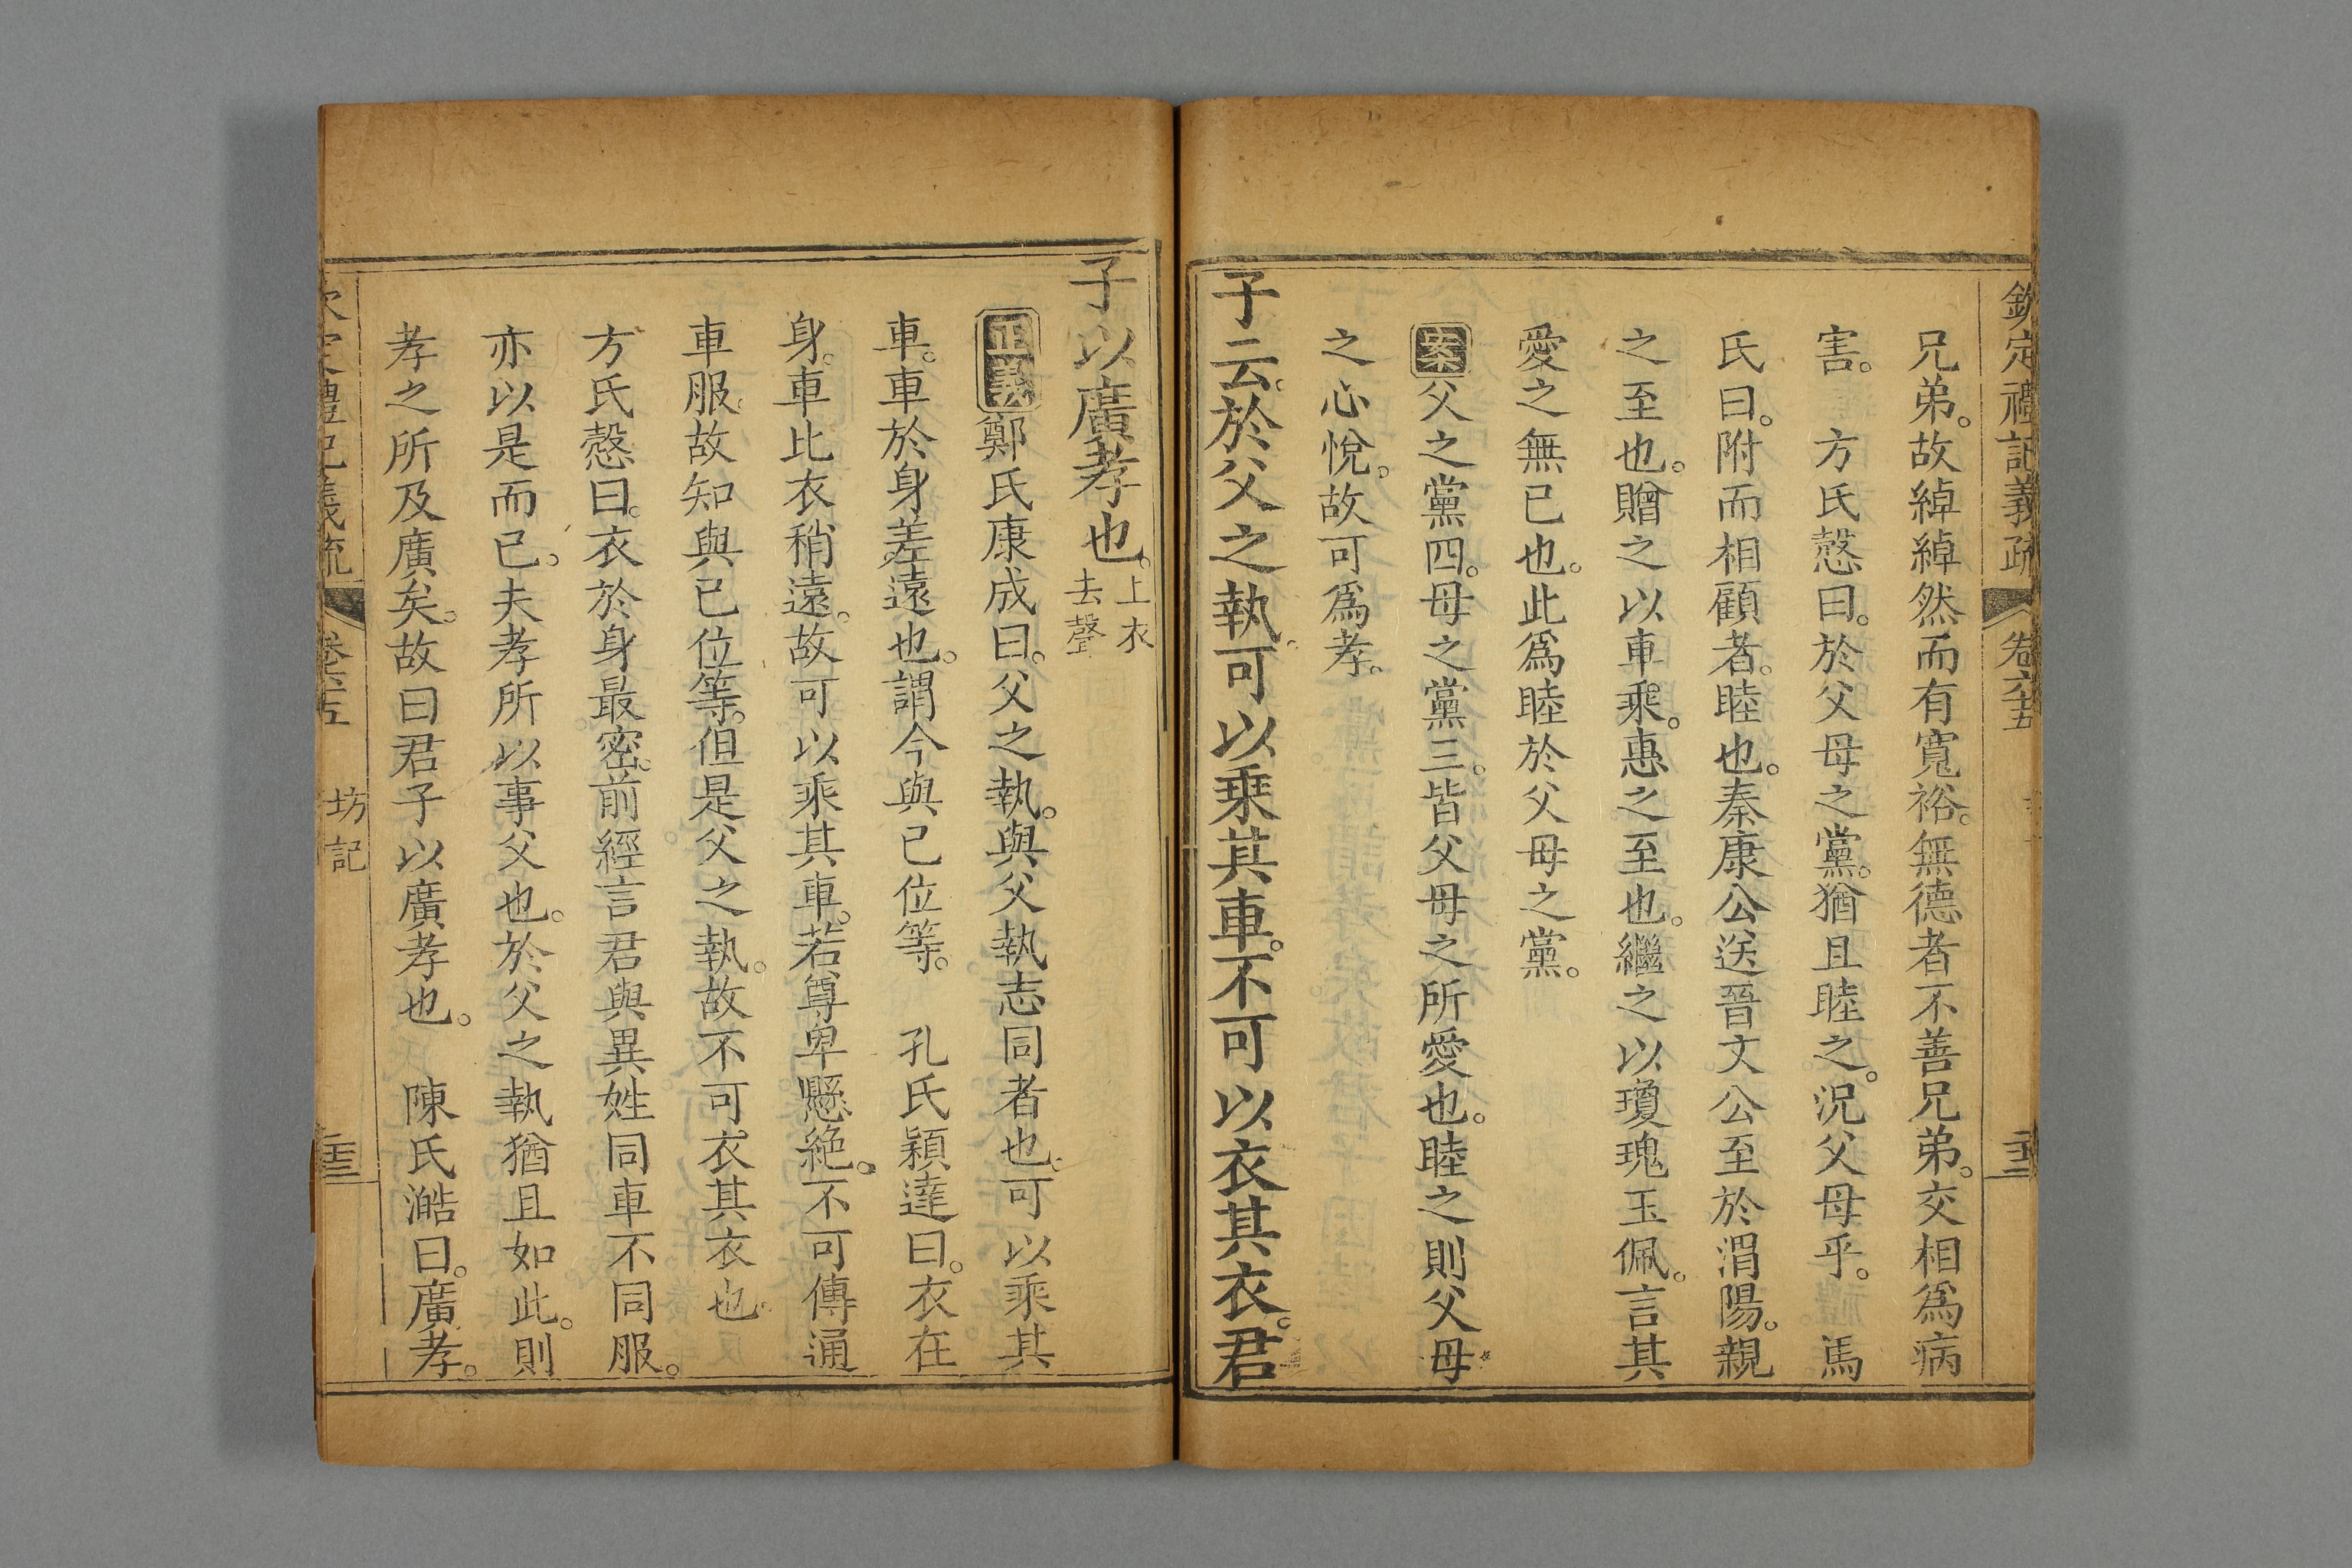 欽定禮記義疏 卷六十五
兄弟。故綽綽然而有寬裕。無德者不善兄弟。交相爲病
害。 方氏慤曰。於父母之黨。猶且睦之。況父母乎。 馬
氏曰。附而相顧者。睦也。秦康公送晉文公至於渭陽。親
之至也。贈之以車乘。惠之至也。繼之以瓊瑰玉佩。言其
愛之無已也。此爲睦於父母之黨。
案父之黨四。母之黨三。皆父母之所愛也。睦之則父母
之心悅。故可爲孝。
子云。於父之執。可以乘其車。不可以衣其衣。君
子以廣孝也。上衣去聲
正義鄭氏康成曰。父之執。與父執志同者也。可以乘其
車。車於身差遠也。謂今與已位等。 孔氏穎達曰。衣在
身。車比衣稍遠。故可以乘其車。若尊卑懸絶。不可傳通
車服。故知與已位等。但是父之執。故不可衣其衣也。
方氏慤曰。衣於身最密。前經言君與異姓同車不同服。
亦以是而已。夫孝所以事父也。於父之執猶且如此。則
孝之所及廣矣。故曰君子以廣孝也。 陳氏澔曰。廣孝。
欽定禮記義疏 卷六十五 坊記